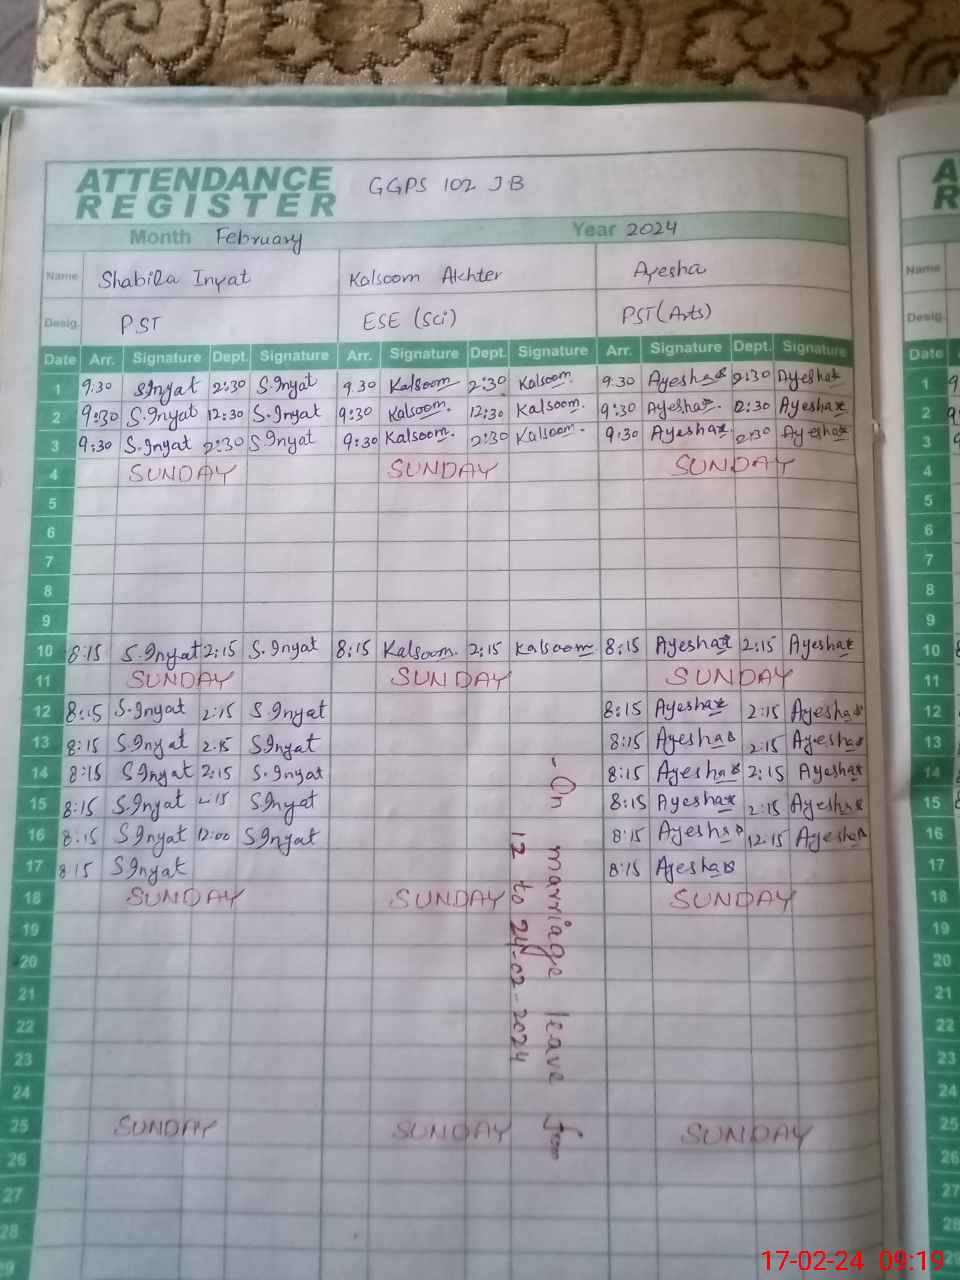 ATTENDANCE REGISTER GGPS 102 JB
Month February Year 2024
Name Shabila Inyat Kalsoom Akhter Ayesha
Desig. PST ESE (Sci) PST (Arts)
Date Arr. Signature Dept. Signature Arr. Signature Dept. Signature Arr. Signature Dept. Signature
1 9:30 S.Inyat 2:30 S.Inyat 9.30 Kalsoom 2:30 Kalsoom. 9:30 Ayesha 2:30 Ayesha
2 9:30 S.Inyat 12:30 S.Inyat 9:30 Kalsoom. 12:30 Kalsoom. 9:30 Ayesha. 2:30 Ayesha
3 9:30 S.Inyat 2:30 S Inyat 9:30 Kalsoom. 2:30 Kalsoom. 9:30 Ayesha 2:30 Ayesha
4 SUNDAY SUNDAY SUNDAY
5
6
7
8
9
10 8:15 S.Inyat 2:15 S.Inyat 8:15 Kalsoom. 2:15 Kalsoom 8:15 Ayesha 2:15 Ayesha
11 SUNDAY SUNDAY SUNDAY
12 8:15 S.Inyat 2:15 S.Inyat 8:15 Ayesha 2:15 Ayesha
13 8:15 S.Inyat 2:15 S.Inyat 8:15 Ayesha 2:15 Ayesha
14 8:15 S Inyat 2:15 S.Inyat 8:15 Ayesha 2:15 Ayesha
15 8:15 S.Inyat 2:15 S.Inyat 8:15 Ayesha 2:15 Ayesha
16 8:15 S Inyat 12:00 S Inyat 8:15 Ayesha 12:15 Ayesha
17 8:15 S Inyat 8:15 Ayesha
18 SUNDAY SUNDAY SUNDAY
19
20
21
22
23
24
25 SUNDAY SUNDAY SUNDAY
26
27
28
- On marriage leave from
12 to 24-02-2024
Name
Desig.
Date
1
2
3
4
5
6
7
8
9
10
11
12
13
14
15
16
17
18
19
20
21
22
23
24
25
26
27
28
17-02-24 09:19